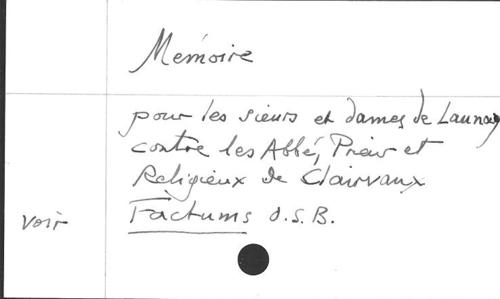 Mémoire
pour les sieurs et dames de Launay
contre les Abbé, Prieur et
Religieux de Clairvaux
voir Factums O.S.B.